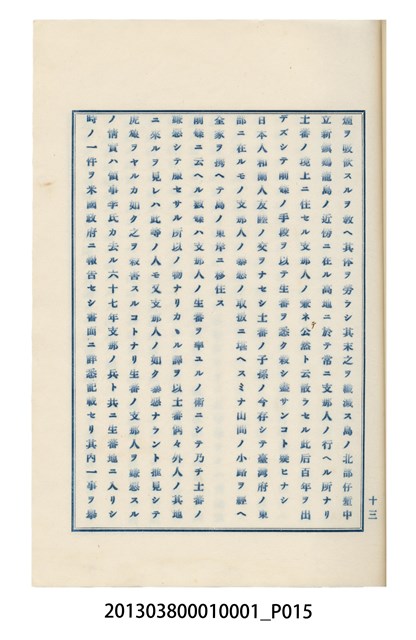 過ヲ收飲スルヲ救ヘ其体ヲ労ラシ其末之ヲ殲滅ス島ノ北部
立新鎮鶏龍島ノ近傍ニ在ル高地ニ於テ常ニ支那人ノ行ヘル所ナリ
土番ノ境上ニ住セル支那人ノ兼ネ公諮ト云放ラセル此后百年ヲ出
デズシテ前様ノ手段ヲ以テ生番ヲ悉ク殺シ盡サンコト疑ヒナシ
日本人和蘭人友睦ノ交ヲナセシ土番ノ子孫ノ今存シテ臺灣府ノ東
部ニ在ルモノ支那人ノ暴慾ノ取扱ニ堪ヘスミナ山間ノ小路ヲ經ヘ
全家ヲ携ヘテ島ノ東岸ニ移住ス
前様ニ云ヘル如ハ支那人ノ生番ヲ學ユルノ術ニシテ乃チ土番ノ
嫌惡シテ服セサル所以ノ物ナリカヽル譯ヲ以土番偶々外人ノ其地
ニ來ルヲ見レハ此等ノ人モ又支那人ノ如ク暴惡ナラント推見シテ
虎處ヲヤルカ如ク之ヲ殺害スルコトナリ生番ノ支那人ヲ嫌惡スル
ノ情實ハ領事李氏カ去ル六十七年支那ノ兵ト共ニ生番地ニ入リシ
時ノ一件ヲ米國政府ニ報告セシ書面ニ詳悉記載セリ其内一事ヲ擧
十三
201303800010001_P015